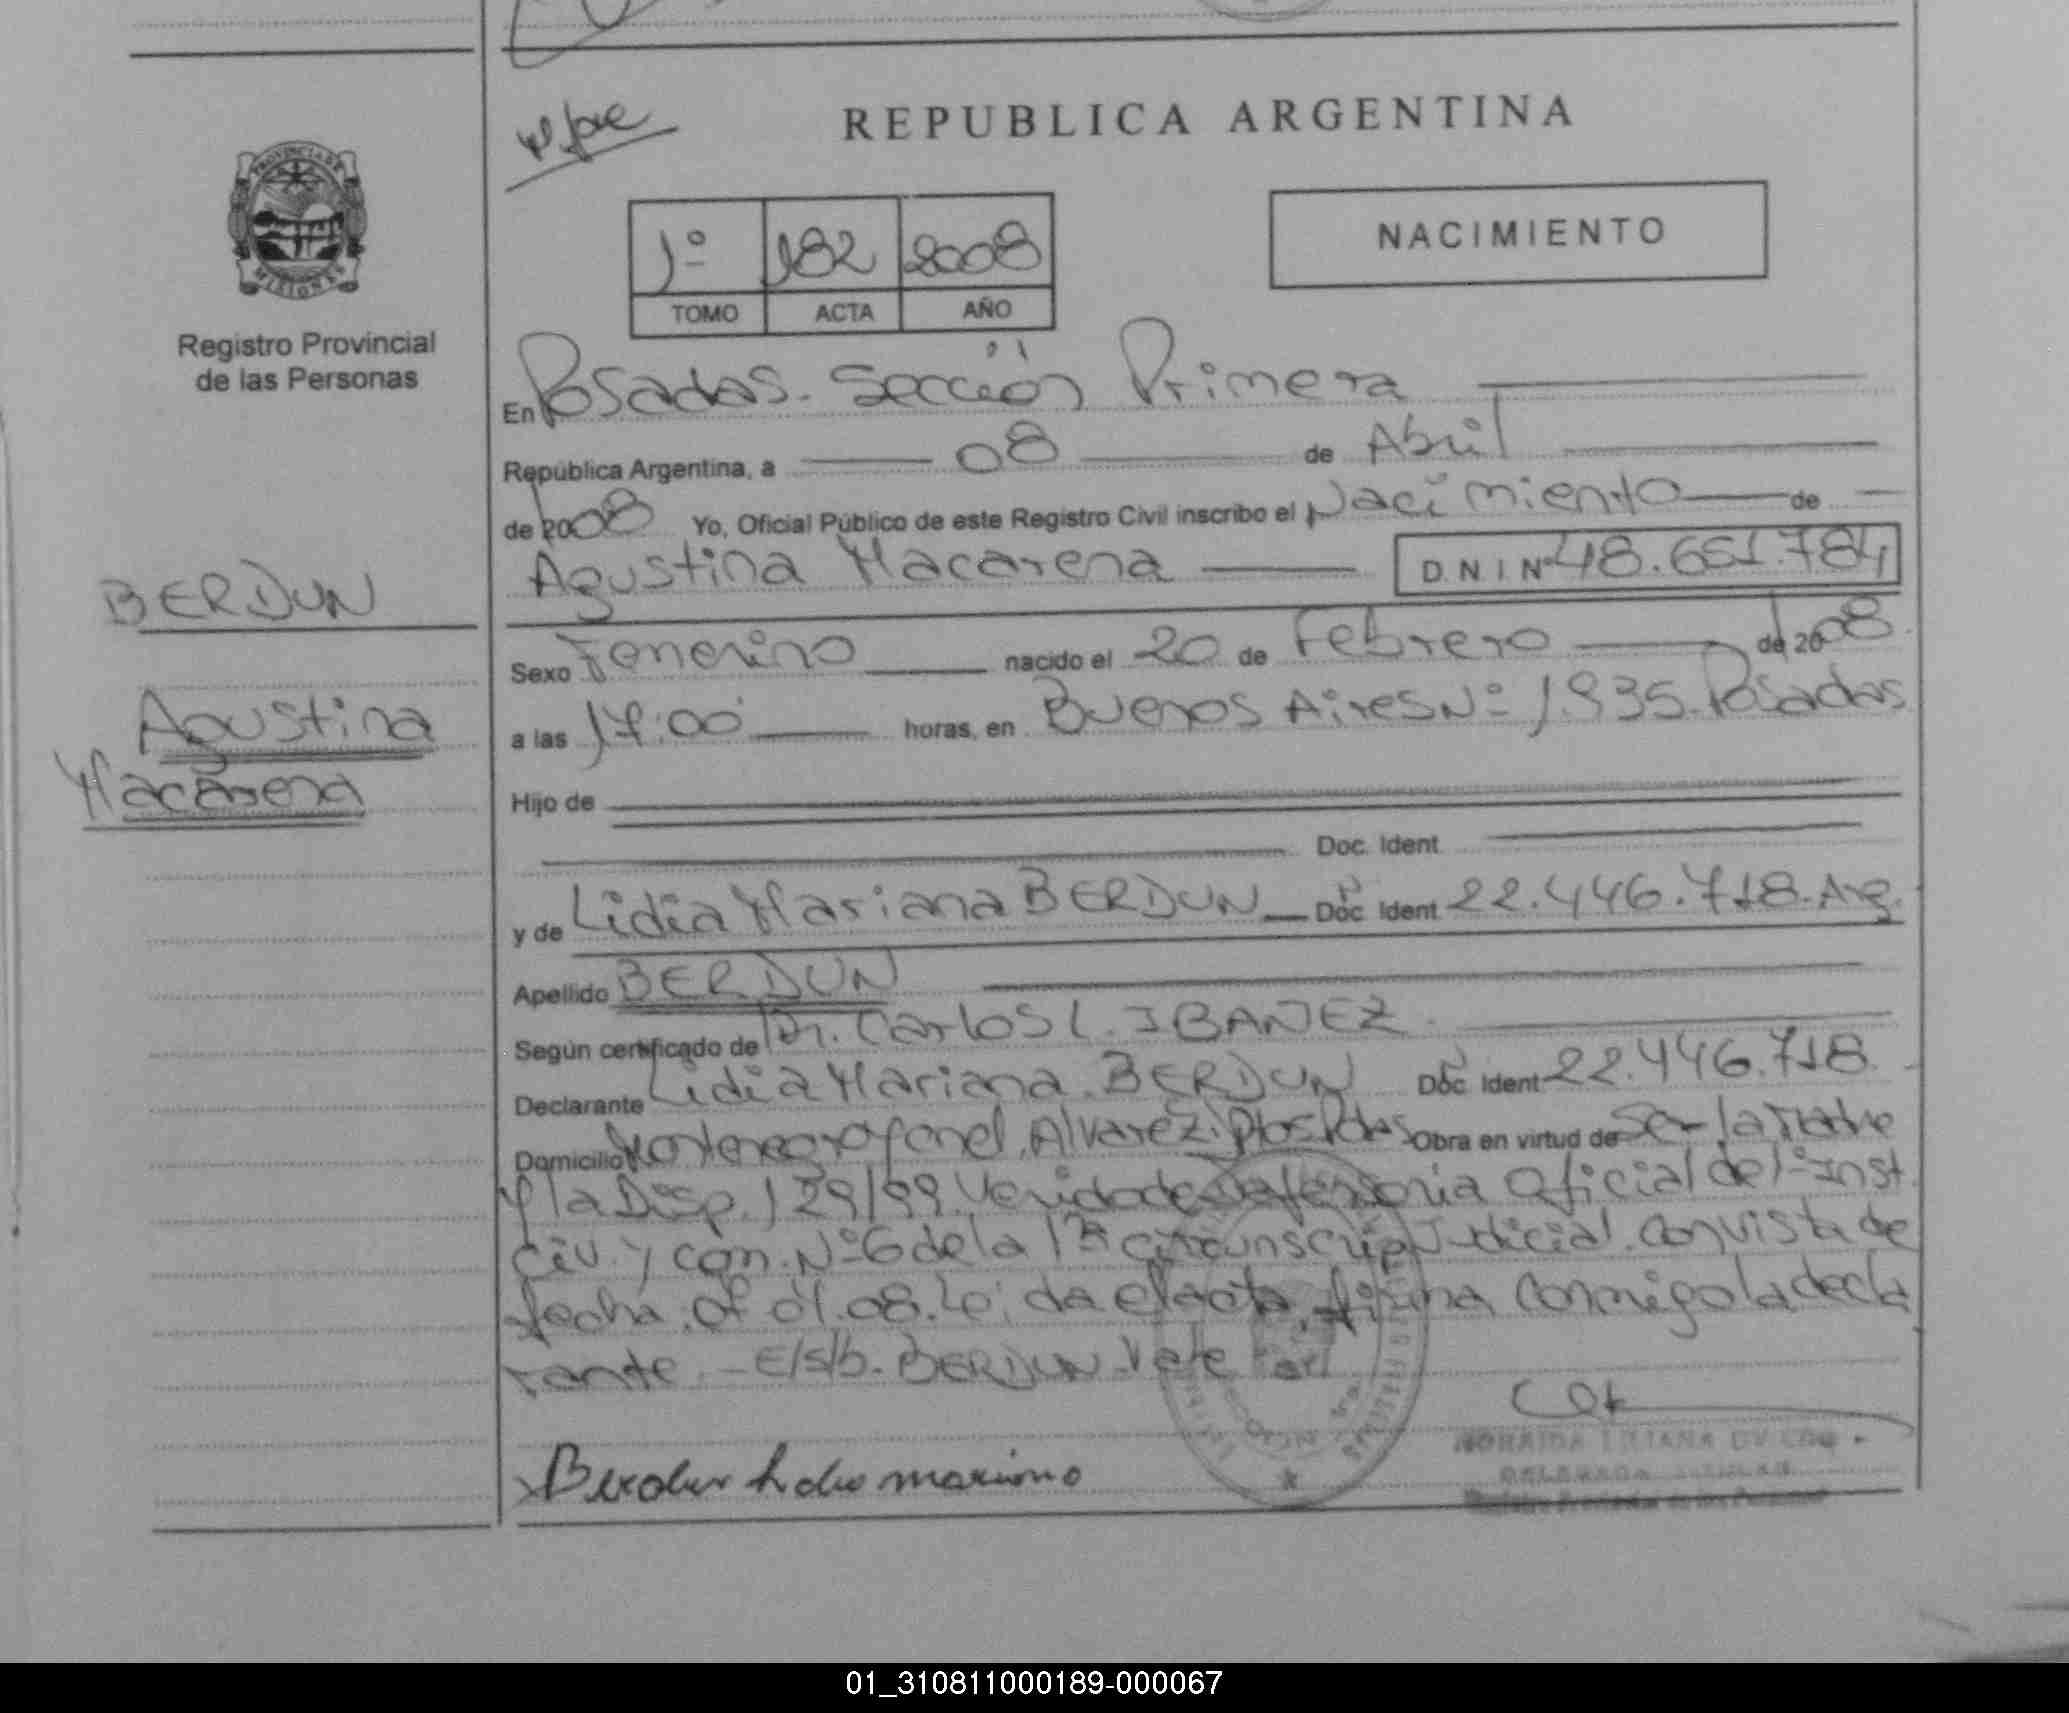 REPUBLICA ARGENTINA
PROVINCIA DE
MISIONES
Registro Provincial
de las Personas
1º 182 2008
TOMO ACTA AÑO
NACIMIENTO
En Posadas. Sección Primera
República Argentina, a 08 de Abril
de 2008 Yo, Oficial Público de este Registro Civil inscribo el Nacimiento de
Agustina Macarena D.N.I Nº 48.651.784
BERDUN
Agustina
Macarena
Sexo Femenino nacido el 20 de Febrero de 2008.
a las 17:00 horas, en Buenos Aires Nº 1.935. Posadas
Hijo de
Doc. Ident.
y de Lidia Mariana BERDUN Doc. Ident. 22.446.718. Arg.
Apellido BERDUN
Según certificado de Dr. Carlos L. IBAÑEZ.
Declarante Lidia Mariana BERDUN Doc. Ident. 22.446.718.
Domicilio Alvarez. Obra en virtud de Ser la Madre
y la Disp. 129/99. Defensoria Oficial de Inst.
Civ. y Com. Nº 6 de la 1ra Circunscrip. Judicial. con vista de
fecha. Leida el acta, firma conmigo la decla
rante. - E/s/b. BERDUN. Vale
Berdun Lidia mariana
01_310811000189-000067